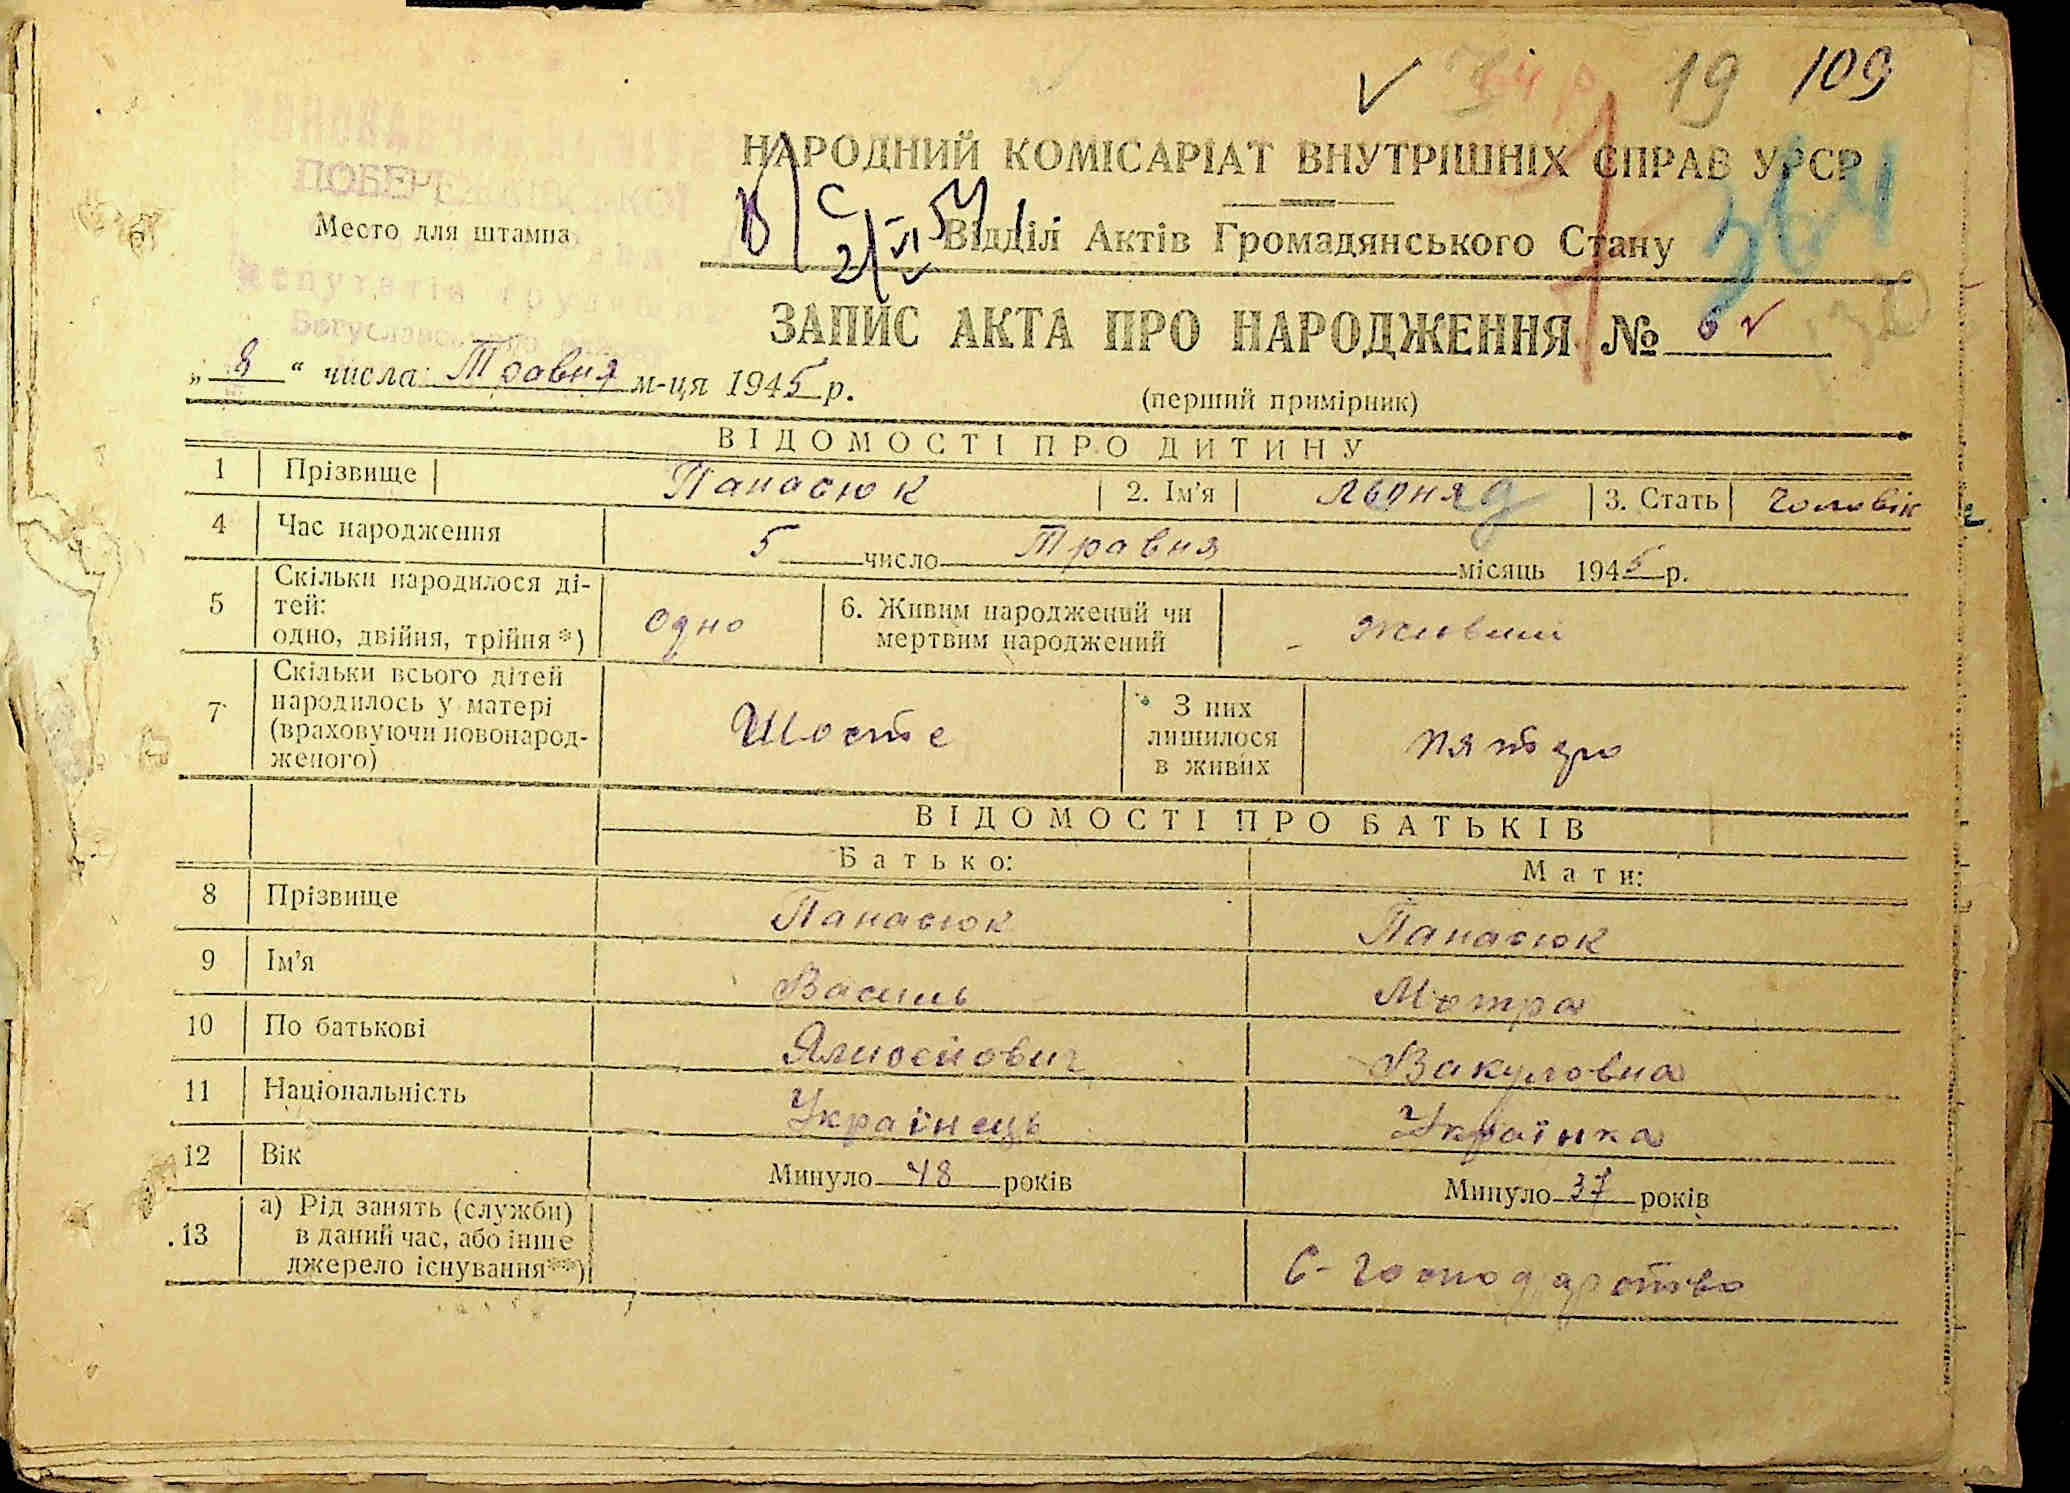 19 109
НАРОДНИЙ КОМІСАРІАТ ВНУТРІШНІХ СПРАВ УРСР
364
ПОБЕРЕЖСЬКОЇ
Место для штампа
депутатів трудящих
Відділ Актів Громадянського Стану
ЗАПИС АКТА ПРО НАРОДЖЕННЯ № 6
„ 8 “ числа Травня м-ця 1945 р.
(перший примірник)
ВІДОМОСТІ ПРО ДИТИНУ
1 Прізвище Панасюк 2. Ім'я 3. Стать Чоловік
4 Час народження 5 число Травня місяць 1945 р.
5 Скільки народилося ді-
тей:
одно, двійня, трійня *) Одно 6. Живим народжений чи
мертвим народжений Живий
7 Скільки всього дітей
народилось у матері
(враховуючи новонарод-
женого) Шосте З них
лишилося
в живих пятеро
ВІДОМОСТІ ПРО БАТЬКІВ
Батько: Мати:
8 Прізвище Панасюк Панасюк
9 Ім'я Василь Мотра
10 По батькові Вакуловна
11 Національність Українець Українка
12 Вік Минуло 48 років Минуло 37 років
13 а) Рід занять (служби)
в даний час, або інше
джерело існування**) С-господарство